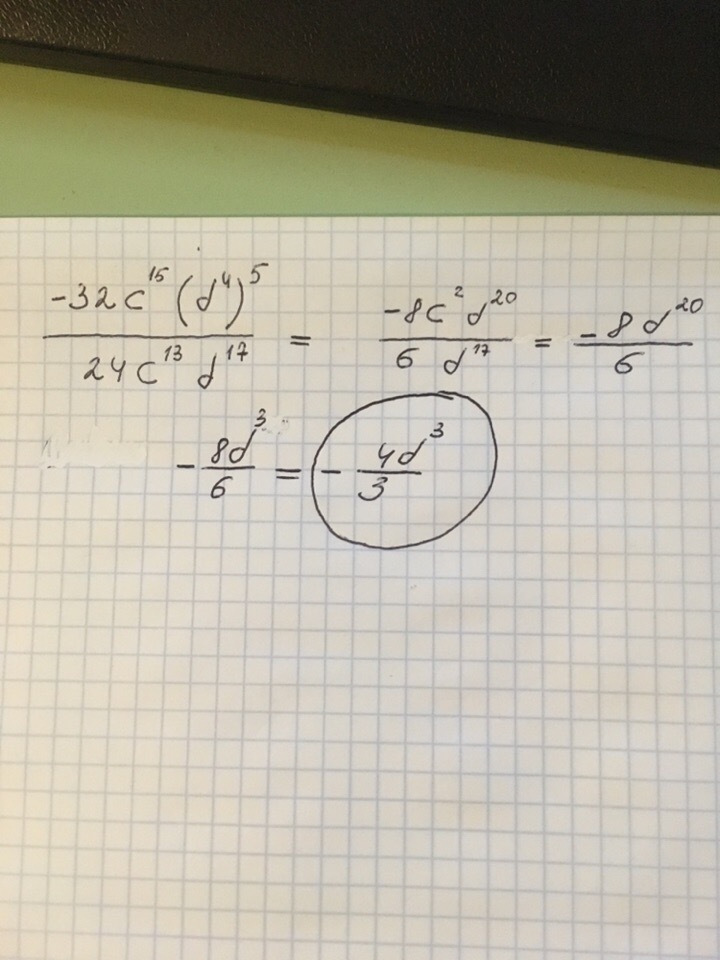 -32c¹⁵(d⁴)⁵ / 24c¹³d¹⁷ = -8c²d²⁰ / 6 d¹⁷ = -8d²⁰ / 6
- 8d³ / 6 = - 4d³ / 3